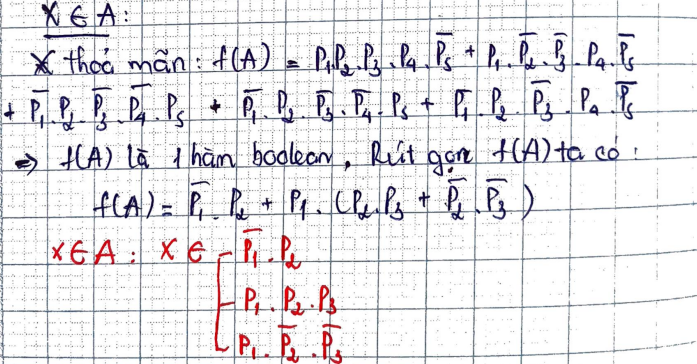 X ∈ A:
X thoả mãn: f(A) = P₁.P₂.P₃.P₄.P̅₅ + P₁.P̅₂.P̅₃.P₄.P̅₅
+ P̅₁.P₂.P̅₃.P̅₄.P₅ + P̅₁.P₂.P̅₃.P̅₄.P₅ + P̅₁.P₂.P̅₃.P₄.P̅₅
⇒ f(A) là 1 hàm boolean, Rút gọn f(A) ta có:
f(A) = P̅₁.P₂ + P₁.(P₂.P₃ + P̅₂.P̅₃)
X ∈ A: X ∈ P̅₁.P₂
P₁.P₂.P₃
P₁.P̅₂.P̅₃